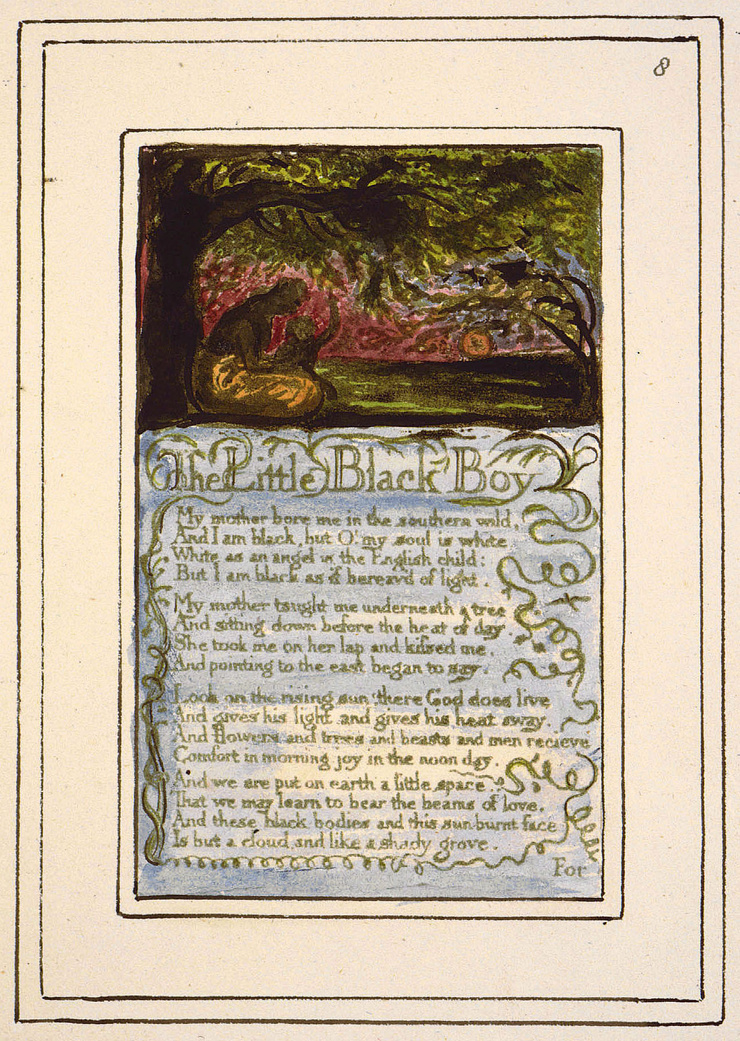 8
The Little Black Boy
My mother bore me in the southern wild,
And I am black, but O! my soul is white
White as an angel is the English child:
But I am black as if bereav'd of light.
My mother taught me underneath a tree
And sitting down before the heat of day.
She took me on her lap and kissed me,
And pointing to the east began to say.
Look on the rising sun: there God does live
And gives his light, and gives his heat away.
And flowers and trees and beasts and men recieve
Comfort in morning joy in the noon day.
And we are put on earth a little space.
That we may learn to bear the beams of love,
And these black bodies and this sun-burnt face
Is but a cloud, and like a shady grove.
For